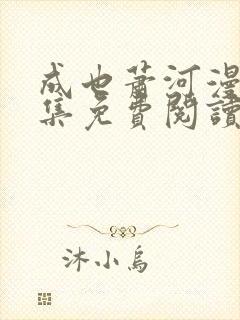 成也萧河漫
集免費閱讀
沐小烏